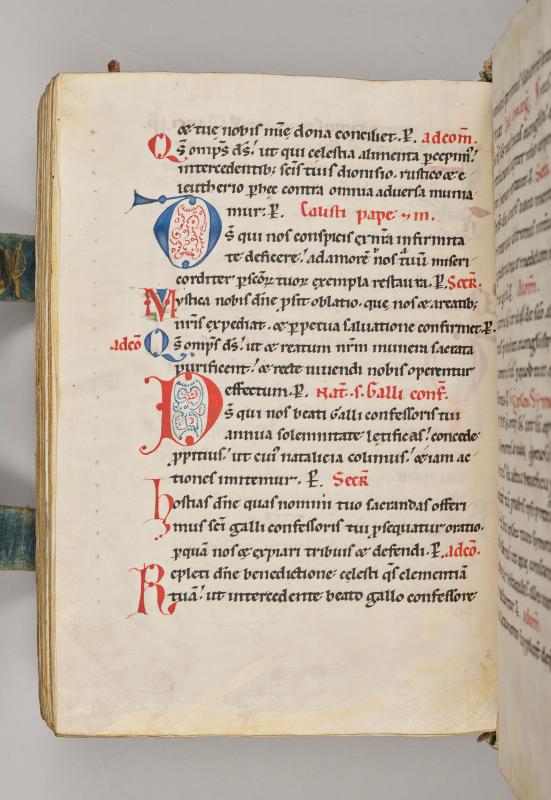 & tue nobis mīe dona conciliet. P. adcom̄.
Qs omps ds. ut qui celestia alimenta percepim'
intercedentib; scīs tuis dionisio. rustico & e
leutherio p hec contra omnia aduersa munia
mur. P. Calisti pape & m̄.
Ds qui nos conspicis ex nr̄a infirmita
te deficere. ad amorē nos tuū miseri
corditer p scōꝝ tuoꝝ exempla restaura. P. Secr̄.
Mystica nobis dn̄e p̄sit oblatio. que nos & a reatib;
nr̄is expediat. & p̄petua saluatione confirmet. P.
adcō Qs omps ds. ut & reatum nr̄m munera sacrata
purificent. & recte uiuendi nobis operentur
effectum. P. Nat. S. Galli conf.
Ds qui nos beati Galli confessoris tui
annua solemnitate letificas. concede
p̄pitius. ut cui' natalicia colimus. & iam ac
tiones imitemur. P. Secr̄
hostias dn̄e quas nomini tuo sacrandas offeri
mus sc̄i galli confessoris tui p̄sequatur oratio.
p quā nos & expiari tribuis & defendi. P. adcō.
Repleti dn̄e benedictione celesti qs clementiā
tuā. ut intercedente beato gallo confessore